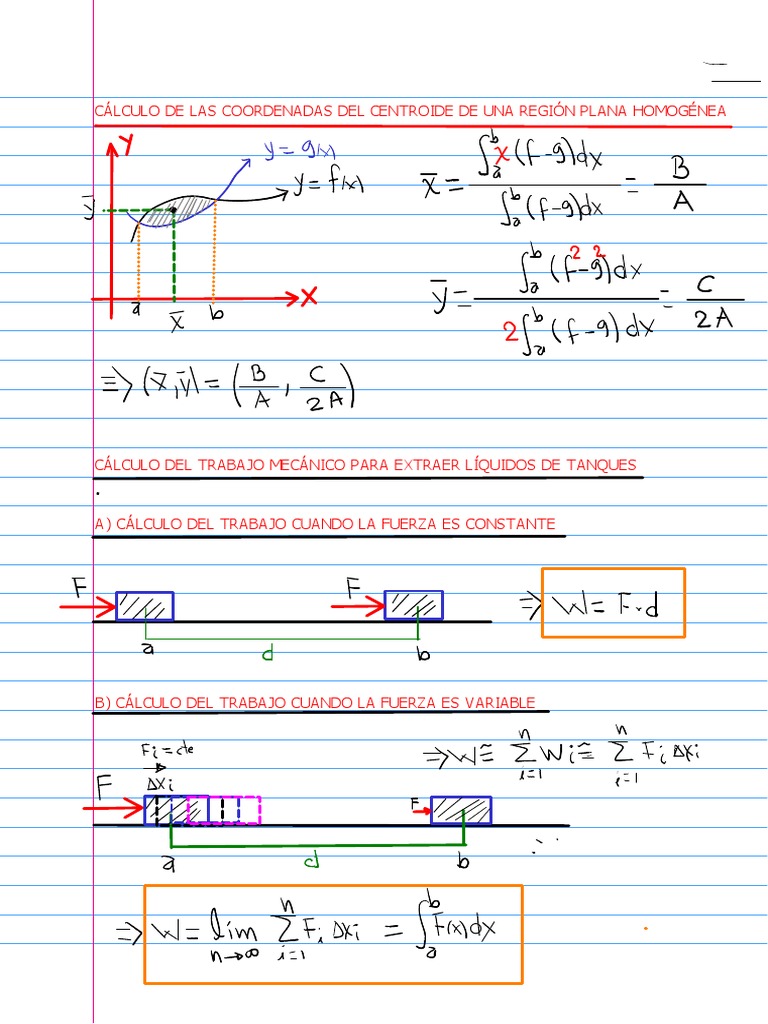 CÁLCULO DE LAS COORDENADAS DEL CENTROIDE DE UNA REGIÓN PLANA HOMOGÉNEA
y
y = g(x)
y = f(x)
ȳ
a
x̄
b
x
x̄ = ∫ₐᵇ x(f-g)dx / ∫ₐᵇ (f-g)dx = B/A
ȳ = ∫ₐᵇ (f²-g²)dx / 2∫ₐᵇ (f-g)dx = C/2A
⇒ (x̄, ȳ) = (B/A, C/2A)
CÁLCULO DEL TRABAJO MECÁNICO PARA EXTRAER LÍQUIDOS DE TANQUES
.
A) CÁLCULO DEL TRABAJO CUANDO LA FUERZA ES CONSTANTE
F
F
⇒ W = F.d
a
d
b
B) CÁLCULO DEL TRABAJO CUANDO LA FUERZA ES VARIABLE
Fi = cte
Δxi
⇒ W ≅ Σᵢ₌₁ⁿ Wi ≅ Σᵢ₌₁ⁿ Fi Δxi
F
F
a
d
b
∴
⇒ W = lim n→∞ Σᵢ₌₁ⁿ Fi Δxi = ∫ₐᵇ F(x)dx